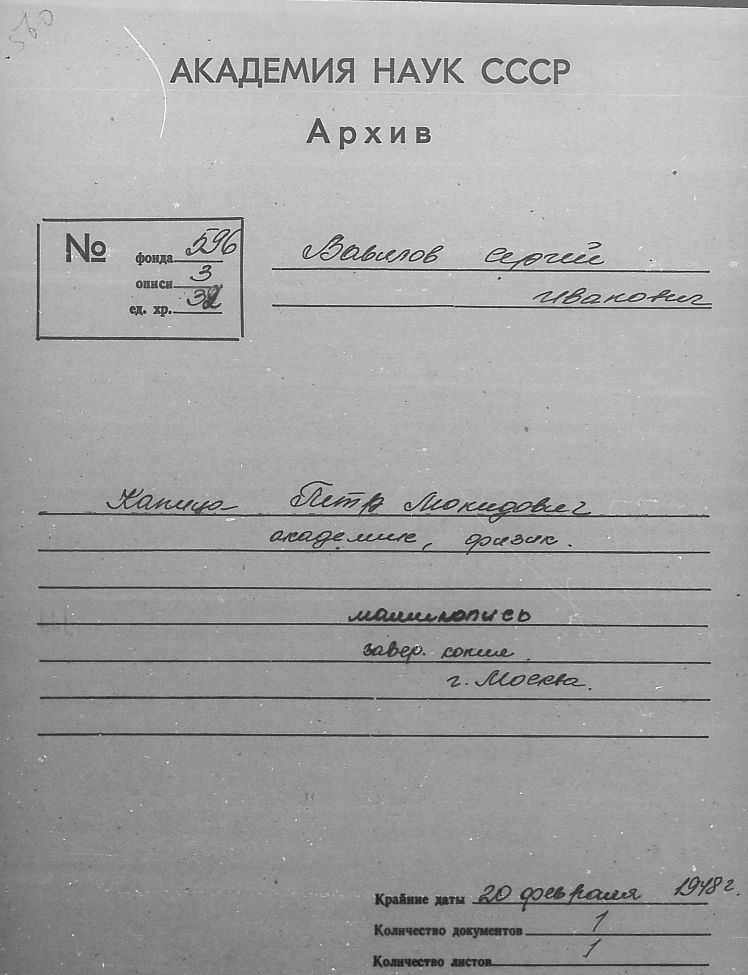 560
АКАДЕМИЯ НАУК СССР
Архив
№
фонда 596
описи 3
ед. хр. 32
Вавилов Сергей
Иванович
Капица Петр Леонидович
академик, физик.
машинопись
завер. копия
г. Москва.
Крайние даты 20 февраля 1948 г.
Количество документов 1
Количество листов 1